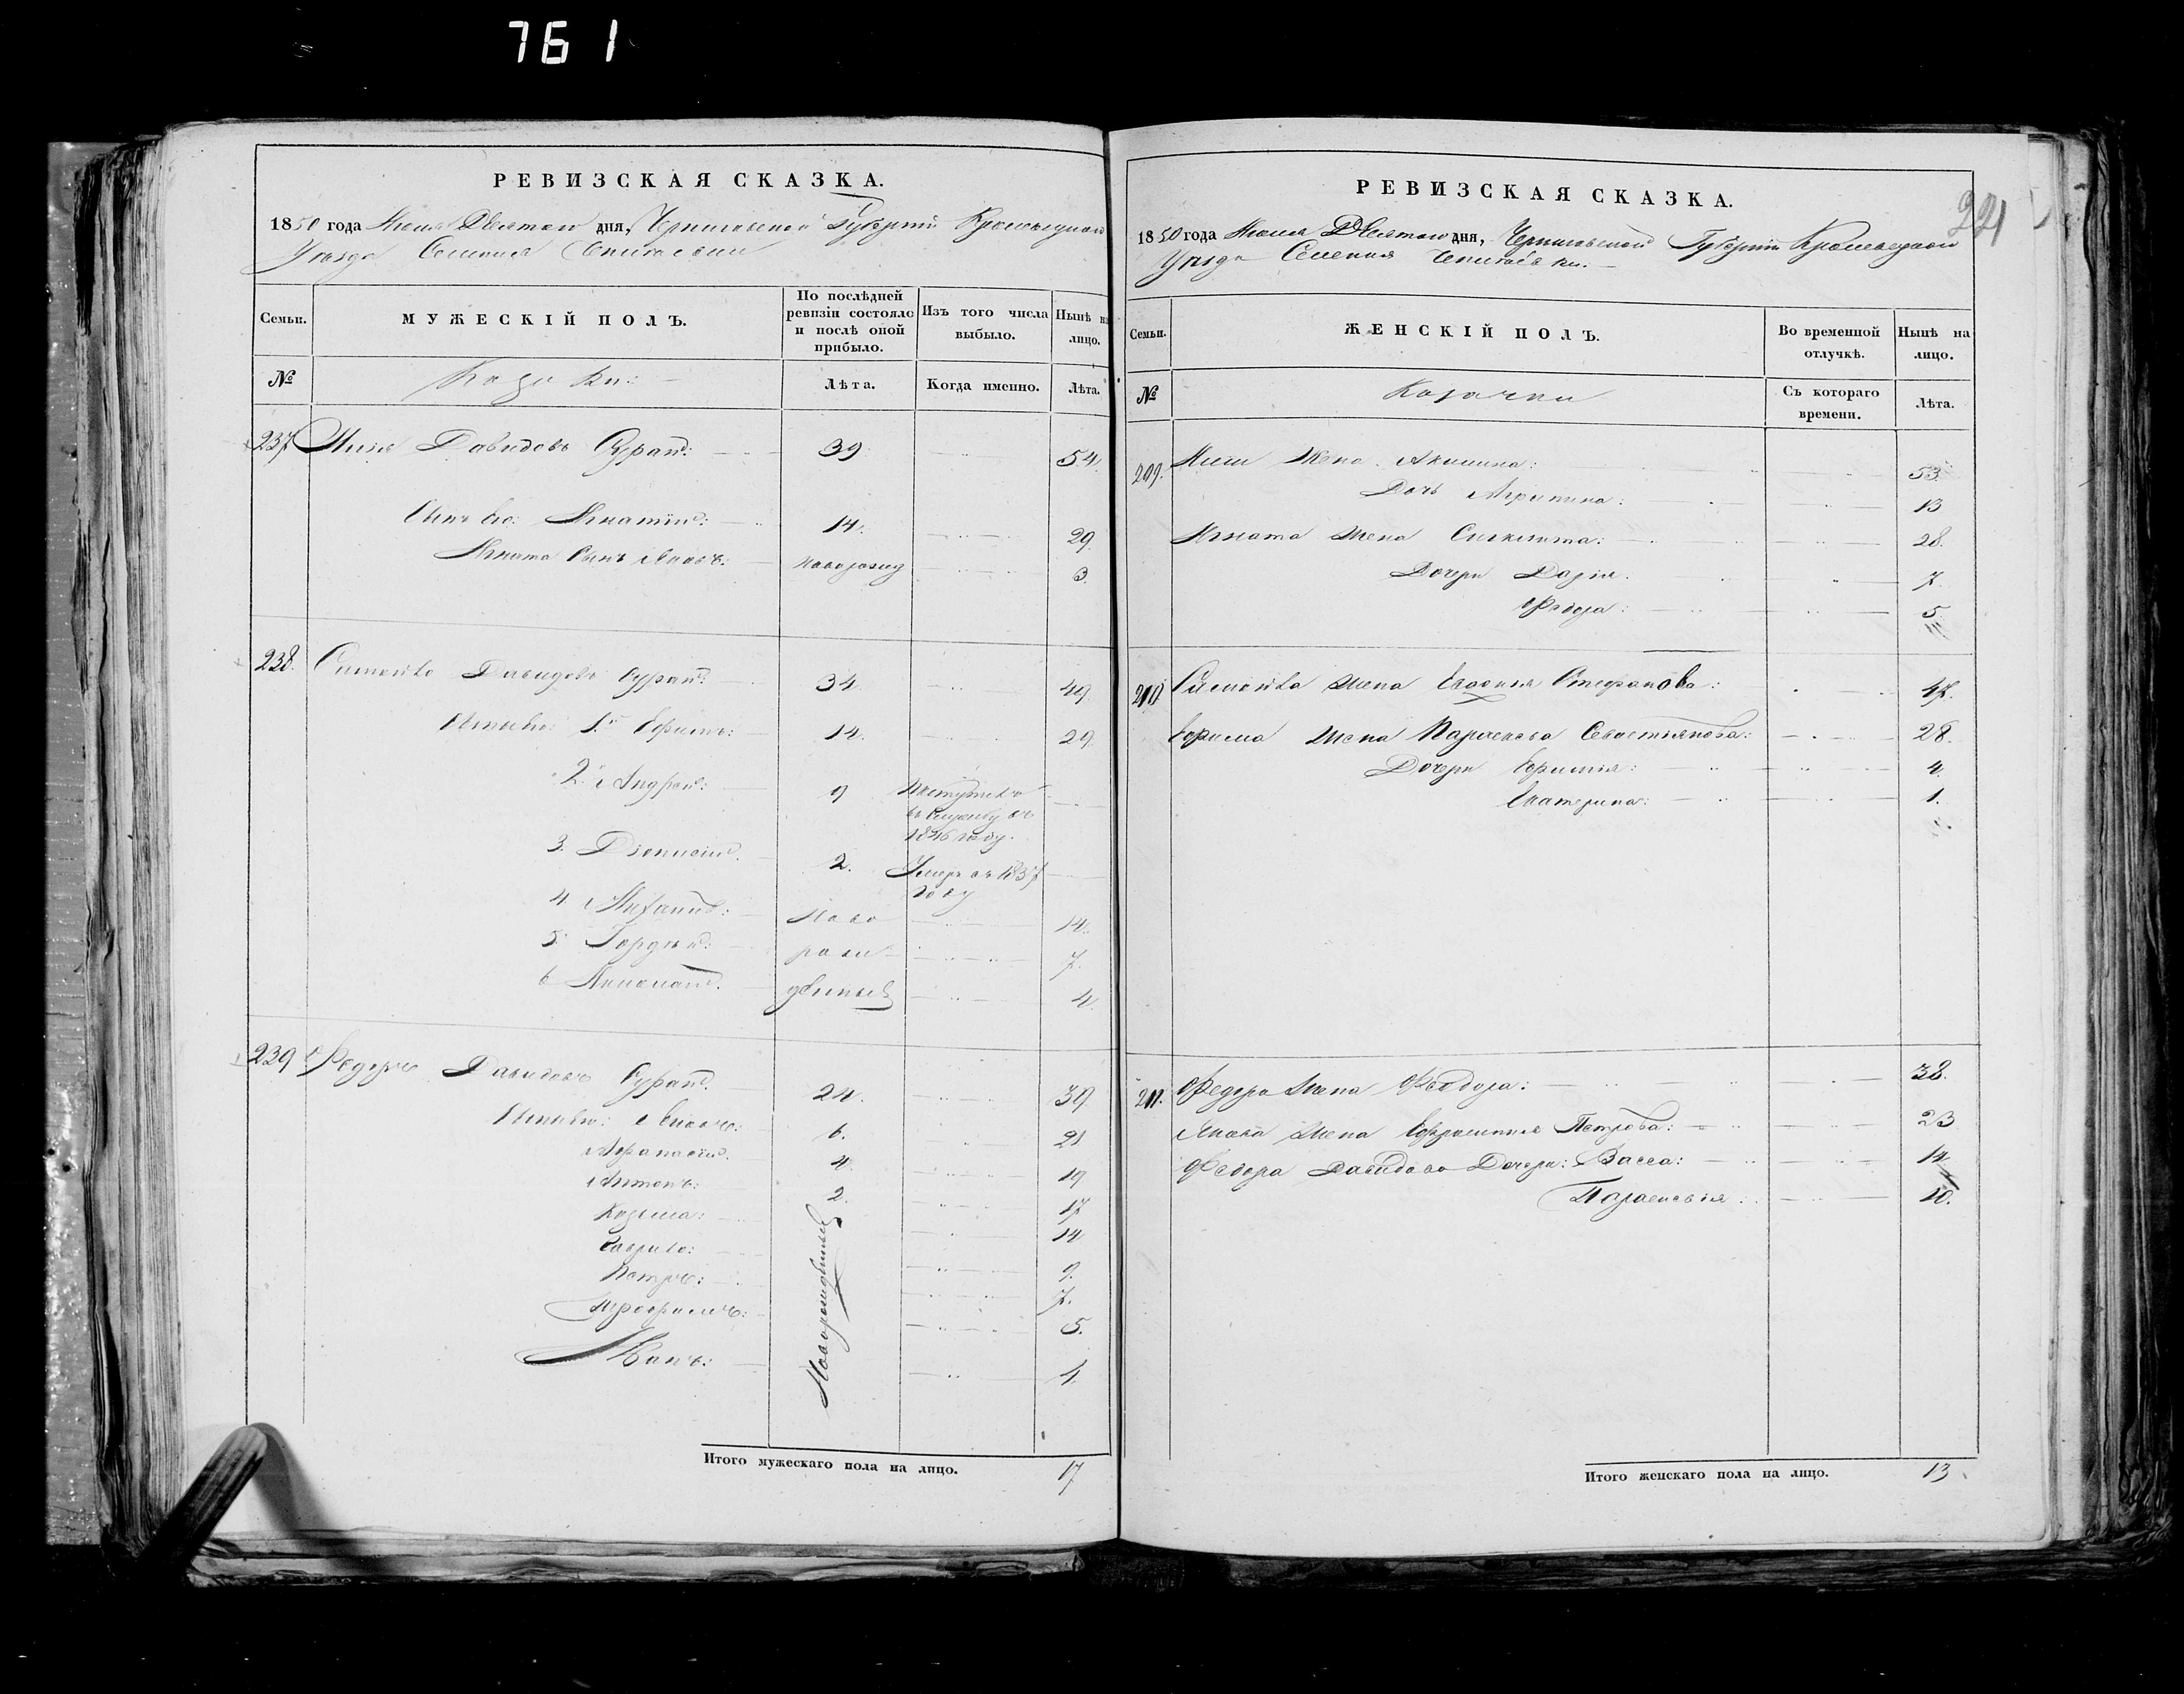 761
РЕВИЗСКАЯ СКАЗКА.
1850 года Июля Девятого дня, Черниговской Губерніи Кролевецкого
Уезда Селенія
Семьи.
МУЖЕСКІЙ ПОЛЪ.
По послѣдней ревизіи состояло и послѣ оной прибыло.
Изъ того числа выбыло.
Нынѣ на лицо.
№
Козаки:
Лѣта.
Когда именно.
Лѣта.
237 Давидовъ 39 54
Сынъ его: Игнатій: 14. 29
Игната Сынъ Яковъ: новорожд 3.
238. Давидовъ 34 49
1й Ефимъ: 14. 29
2й Андрей: 9 въ службу въ 1846 году.
3. Діонисій. 2. Умеръ въ 1837 году
4 Ново 14.
5 Гордѣй: рож 7.
6 денные 4
239 Федоръ Давидовъ 24. 39
Яковъ: 6. 21
Афанасій. 4. 19
Антонъ: 2. 17
Козьма: 14
Гаврило: 9.
Петръ: 7.
Трофимъ: 5.
Иванъ: 1.
Новорожденные
Итого мужескаго пола на лицо. 17
221
РЕВИЗСКАЯ СКАЗКА.
1850 года Июля Девятого дня, Черниговской Губерніи Кролевецкой
Уезда Селенія
Семьи.
ЖЕНСКІЙ ПОЛЪ.
Во временной отлучкѣ.
Нынѣ на лицо.
№
Козачки
Съ котораго времени.
Лѣта.
209. жена Акилина: 53
Дочь Агрипина: 13
Игната жена Синклита: 28.
Дочери Дарія. 7
Федора: 5
210 жена Евдокія Стефанова: 47.
Ефима жена Парасковія Севастіянова: 28.
Дочери Ефимія: 4.
Екатерина: 1.
211. Федора жена Феодора: 38.
Якова жена Ефросинія Петрова: 23
Федора Давидова Дочери: Васса: 14
Параскевія 10.
Итого женскаго пола на лицо. 13